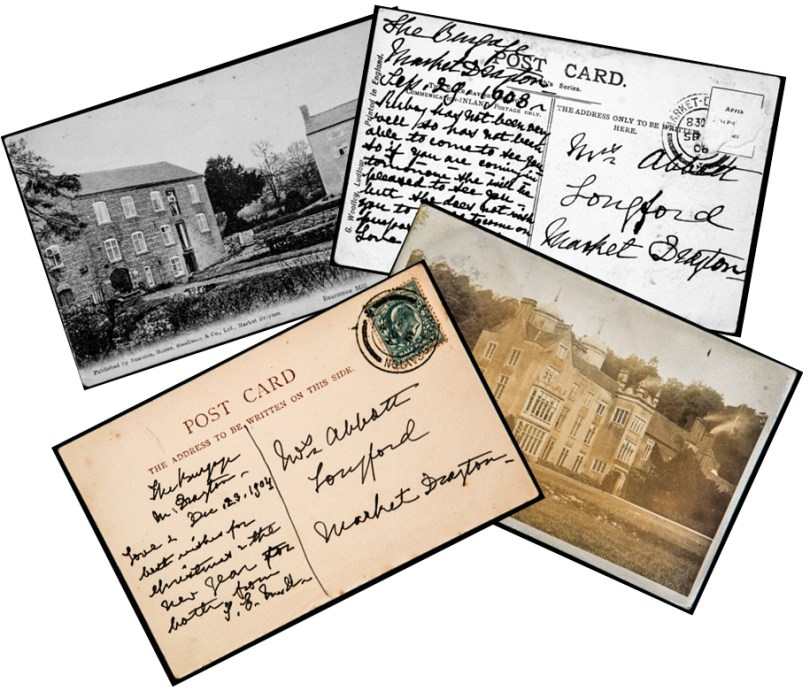 The Burgage
Market Drayton
Sep. 29. 1908 ~
POST CARD.
Series.
COMMUNICATION-INLAND POSTAGE ONLY.
THE ADDRESS ONLY TO BE WRITTEN
HERE.
Printed in England.
G. Woolley, Ludlow
has not been very
well so has not been
able to come to see you
so if you are coming in
pleased to see you -
but she does not wish
you to come on
purpose
Love
MARKET-D
830
SP
08
Mrs Abbott
Longford
Market Drayton
Dearstone Mill
Published by Bennion, Horne, Smallman & Co., Ltd., Market Drayton.
POST CARD
THE ADDRESS TO BE WRITTEN ON THIS SIDE.
The Burgage
M. Drayton -
Dec. 23. 1904
Love &
best wishes for
Christmas & the
New Year for
both from
Mrs Abbott
Longford
Market Drayton -